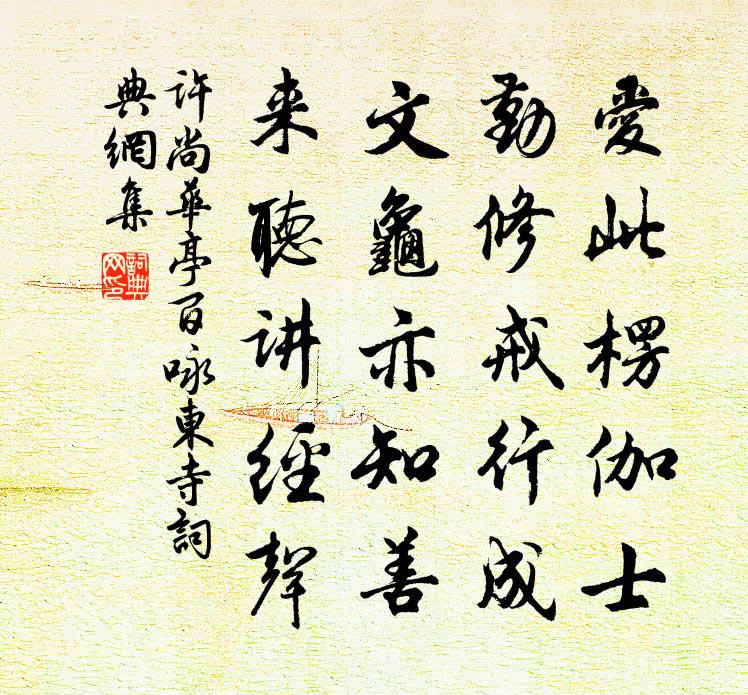 愛此楞伽士
勤修戒行成
文龜亦知善
来聽讲經聲
许尚華亭百咏東寺詞
典網集
詞典
网印